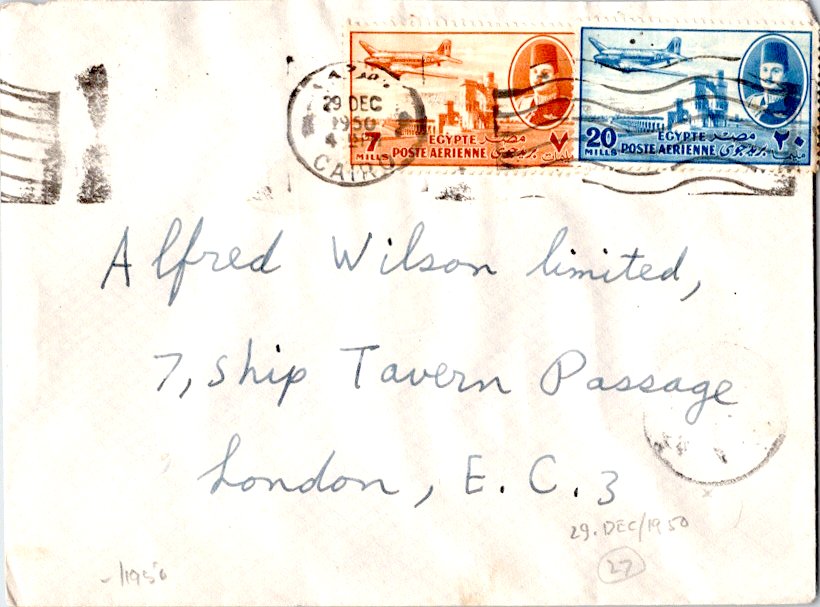 29 DEC
1950
CAIRO
7
MILLS
EGYPTE مصر
POSTE AERIENNE بريد جوى
٧
مليمات
20
MILLS
EGYPTE مصر
POSTE AERIENNE بريد جوى
٢٠
Alfred Wilson limited,
7, Ship Tavern Passage
London, E.C.3
29.DEC/1950
27
-/1950